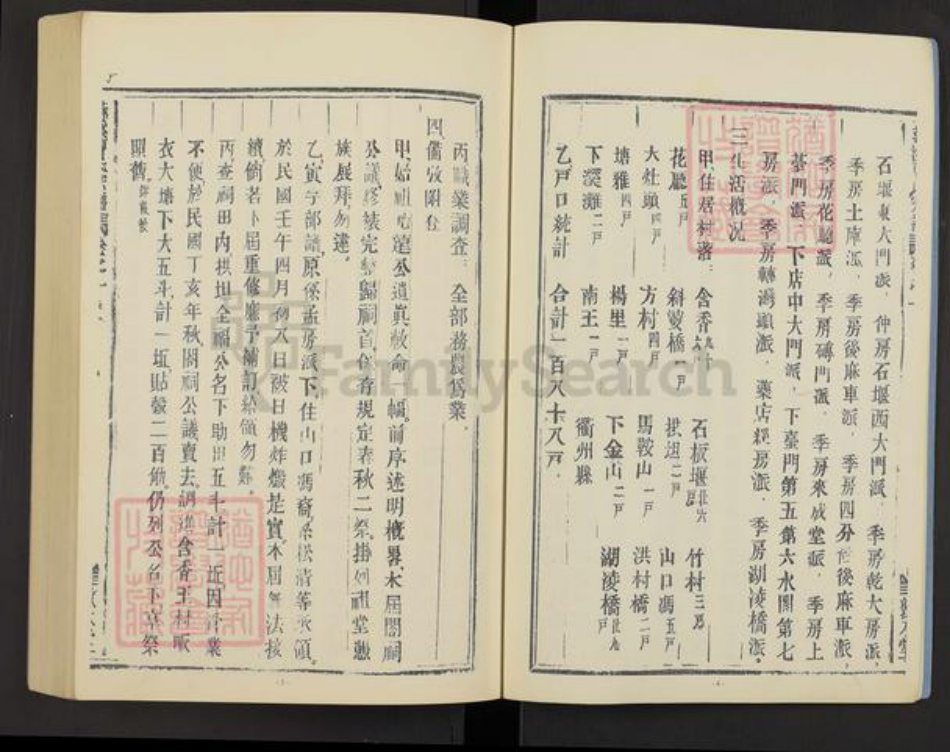 石堰東大門派．仲房石堰西大門派．季房乾大房派．
季房土庫派．季房後麻車派．季房四分 後麻車派．
季房花廳派．季房磚門派．季房來成堂派．季房上
臺門派．下店中大門派．下臺門第五第六水閣第七
房派．季房轉灣頭派．藥店 房派．季房湖凌橋派．
三 生活概况
甲、住居村落：含香 石板堰 竹村三戶
花廳五戶 斜 橋一戶 二戶 山口馮五戶
大灶頭四戶 方村四戶 馬鞍山一戶 洪村橋二戶
塘雅四戶 楊里一戶 下金山二戶 湖凌橋
下溪灘二戶 南王一戶 衢州縣
乙、戶口統計 合計一百八十八戶．
丙、職業調查：全部務農爲業．
四、備攷附
甲、始祖 公遺眞敕命一幅．前序述明概畧，本屆閤祠
公議，修裱完 歸祠首保存，規定春秋二祭，掛列祖堂憑
族展拜，勿違．
乙、寅字部譜，原係孟房派下，住山口馮裔 松清等承領，
於民國壬午四月初八日被日機炸燬是實，本屆無法接
續，倘若下屆重修，應予補訂給領勿 ．
丙、查祠田內拱坦全福公名下助田五斗計一坵，因 業
不便，於民國丁亥年秋，閤祠公議賣去，調進含香王村畈
衣大塘下大五斗計一坵，貼穀二百 ，仍列公名下享祭
照舊．
FamilySearch